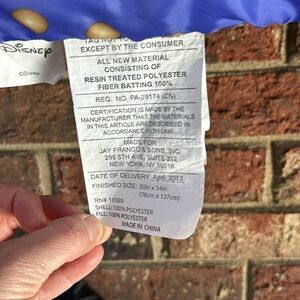 Disney
©Disney
TAG NOT TO
EXCEPT BY THE CONSUMER
ALL NEW MATERIAL
CONSISTING OF
RESIN TREATED POLYESTER
FIBER BATTING 100%
REG. NO. PA-29174 (CN)
CERTIFICATION IS MADE BY THE
MANUFACTURER THAT THE MATERIALS
IN THIS ARTICLE ARE DESCRIBED IN
ACCORDANCE WITH LAW
MADE FOR
JAY FRANCO & SONS, INC.
295 5TH AVE, SUITE 312
NEW YORK, NY 10016
DATE OF DELIVERY April, 2013
FINISHED SIZE: 30in x 54in
(76cm x 137cm)
RN# 18389
SHELL: 100% POLYESTER
FILL: 100% POLYESTER
MADE IN CHINA